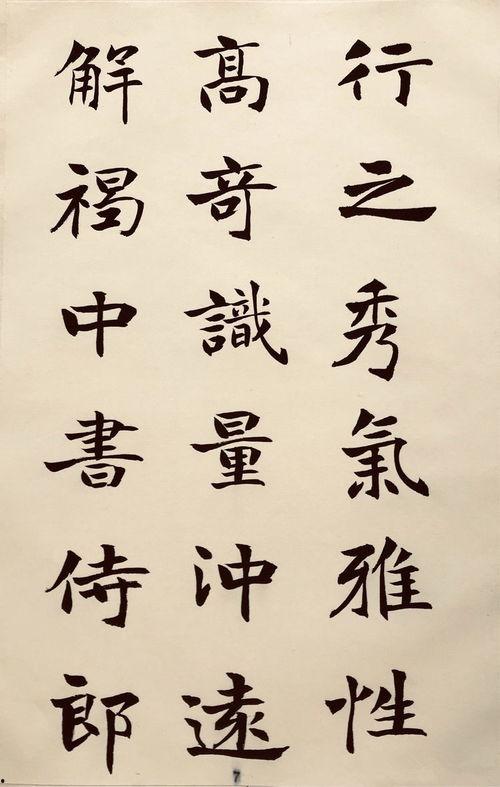 行之秀氣雅性
高奇識量沖遠
解褐中書侍郎
7